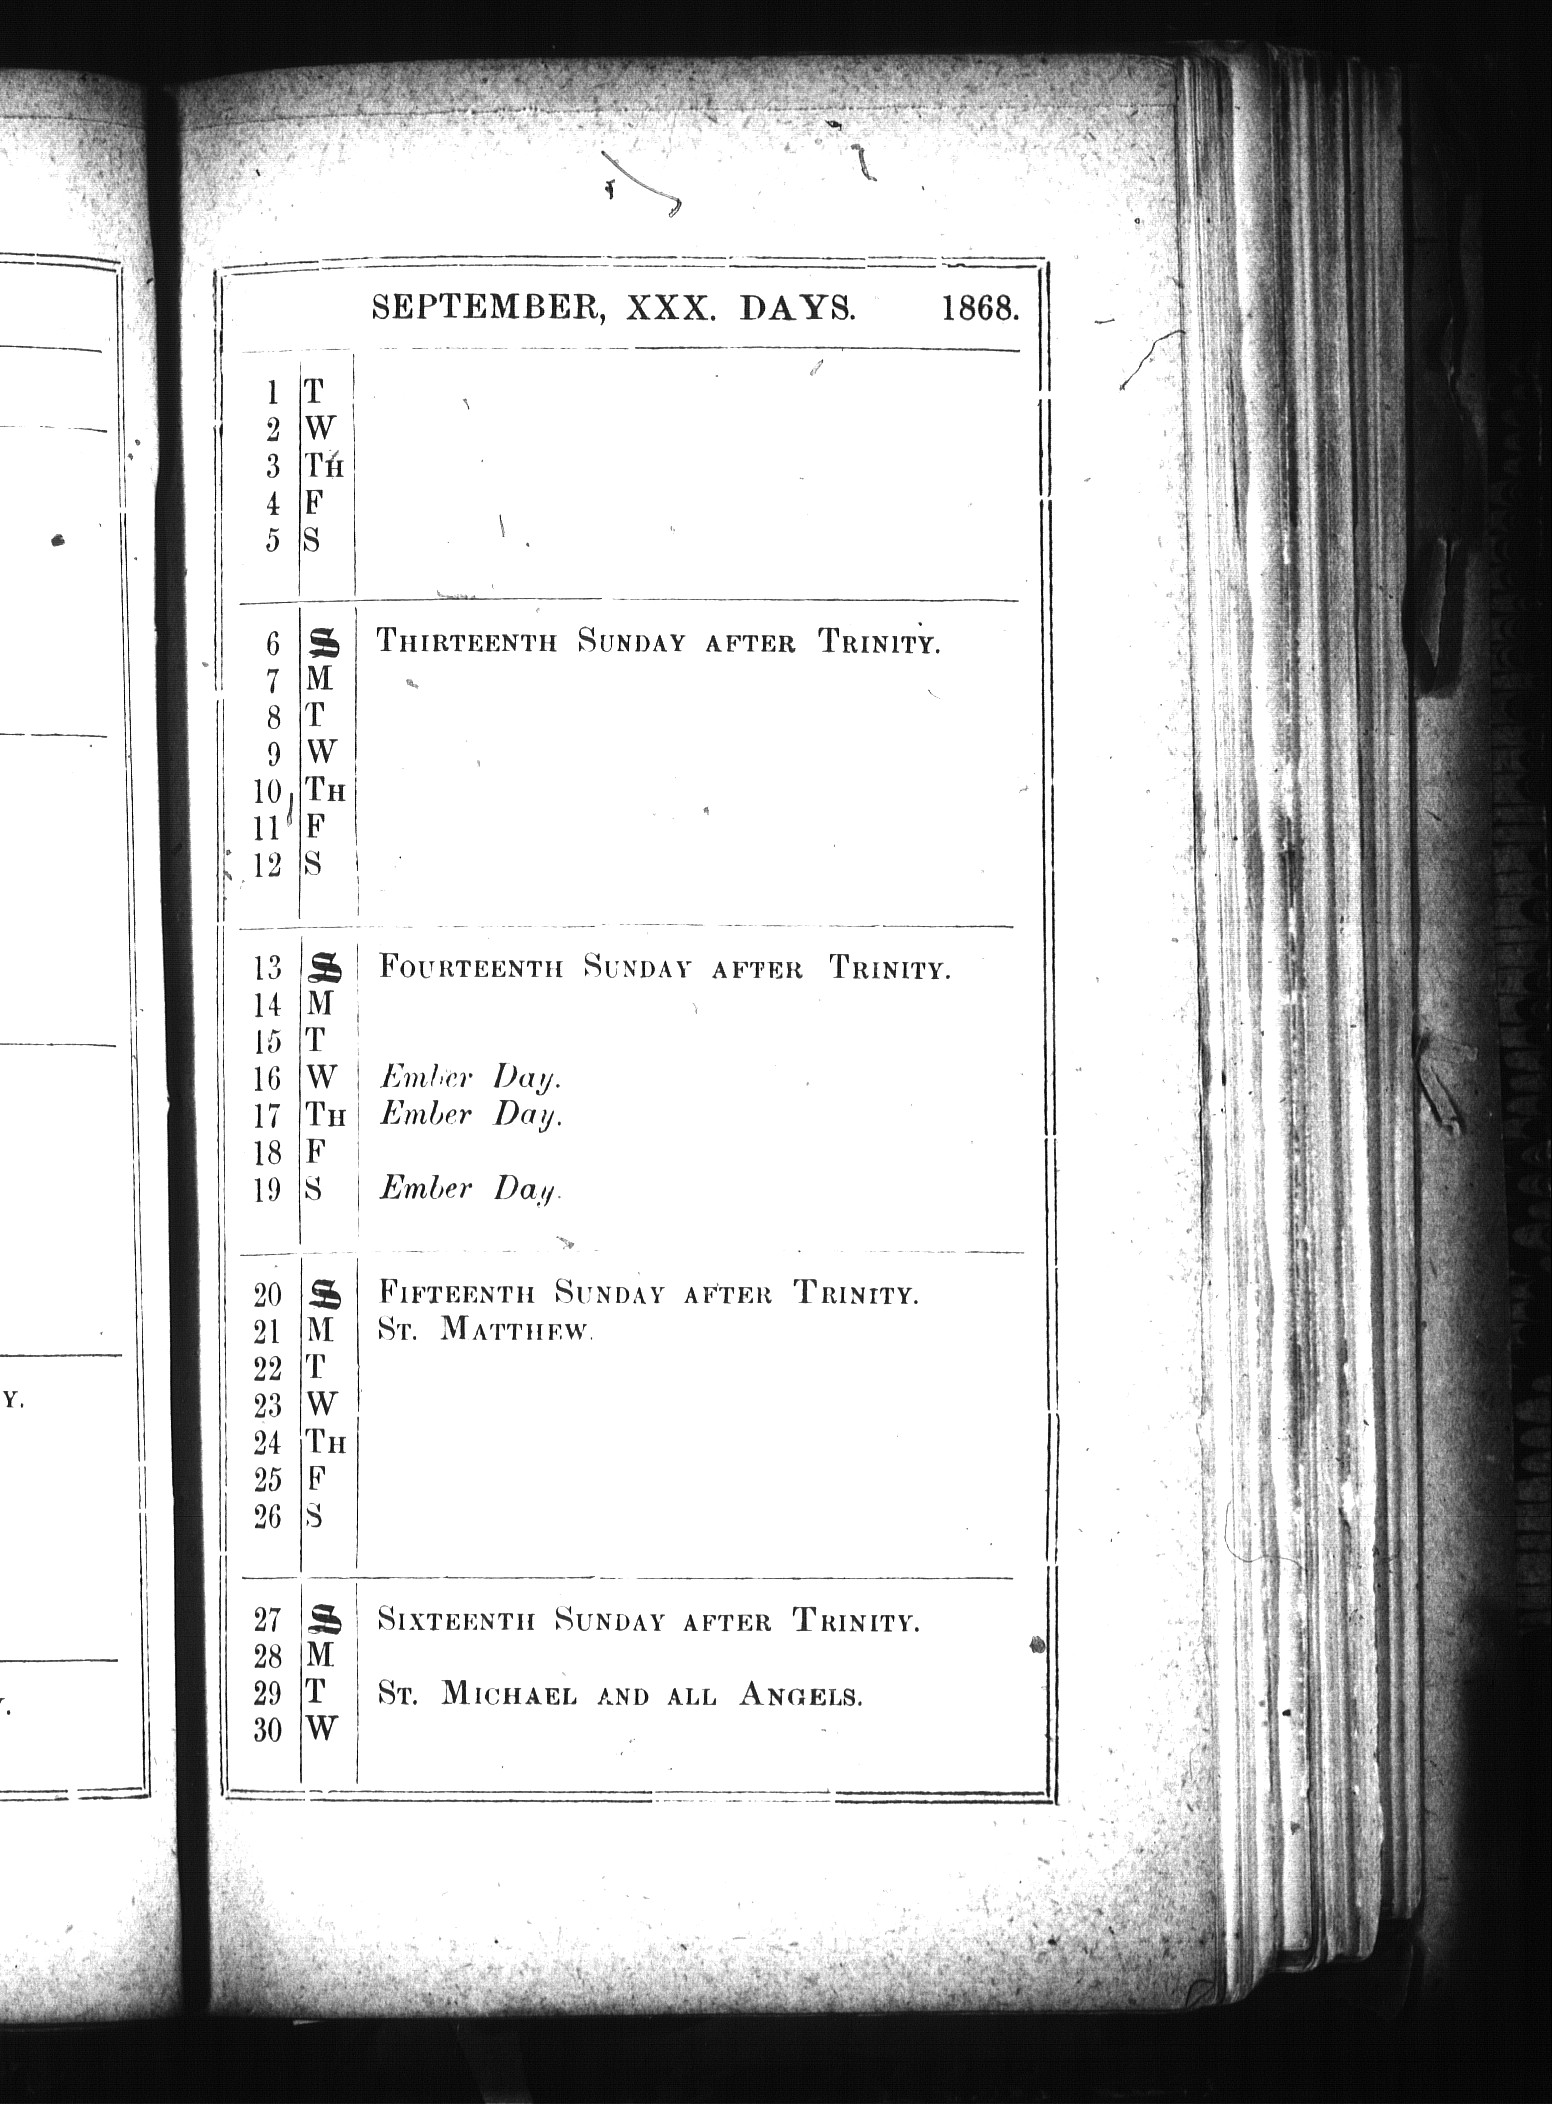 SEPTEMBER, XXX. DAYS. 1868.
1 T
2 W
3 TH
4 F
5 S
6 S THIRTEENTH SUNDAY AFTER TRINITY.
7 M
8 T
9 W
10 TH
11 F
12 S
13 S FOURTEENTH SUNDAY AFTER TRINITY.
14 M
15 T
16 W Ember Day.
17 TH Ember Day.
18 F
19 S Ember Day.
20 S FIFTEENTH SUNDAY AFTER TRINITY.
21 M ST. MATTHEW.
22 T
23 W
24 TH
25 F
26 S
27 S SIXTEENTH SUNDAY AFTER TRINITY.
28 M
29 T ST. MICHAEL AND ALL ANGELS.
30 W